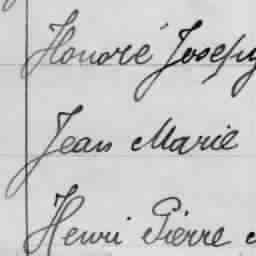 Honoré Joseph
Jean Marie
Henri Pierre